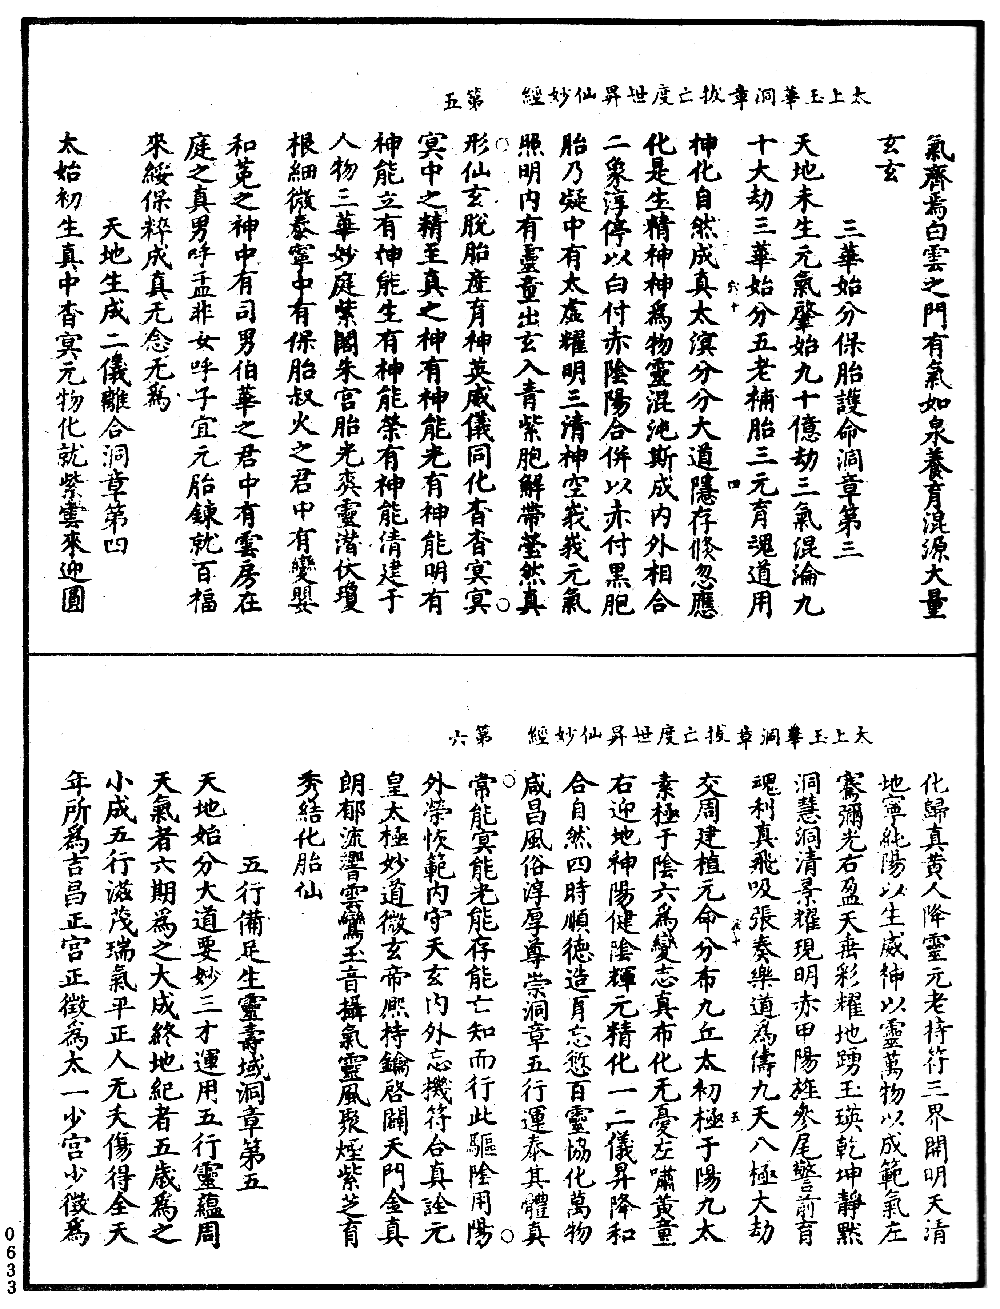 太上玉華洞章拔亡度世昇仙妙經　第五
氣齊焉白雲之門有氣如泉養育混源大量
玄玄
三華始分保胎護命洞章第三
天地未生元氣肇始九十億劫三氣混淪九
十大劫三華始分五老補胎三元育魂道用
神化自然成真太溟分分大道隱存倏忽應
化是生精神神爲物靈混沌斯成內外相合
二象淳停以白付赤陰陽合併以赤付黑胞
胎乃凝中有太虛耀明三清神空峩峩元氣
照明內有靈童出玄入青紫胞解帶瑩然真
形仙玄脫胎產育神英威儀同化杳杳冥冥
冥中之精至真之神有神能光有神能明有
神能立有神能生有神能榮有神能清建于
人物三華妙庭紫閣朱宮胎光爽靈潛伏瓊
根細微泰寧中有保胎叔火之君中有變嬰
和茣之神中有司男伯華之君中有雲房在
庭之真男呼孟非女呼子宜元胎鍊就百福
來綏保粹成真无念无爲
天地生成二儀離合洞章第四
太始初生真中杳冥元物化就紫雲來迎圓
太上玉華洞章拔亡度世昇仙妙經　第六
化歸真黃人降靈元老持符三界開明天清
地寧純陽以生威神以靈萬物以成範氣左
騫彌光右盈天垂彩耀地踴玉瑛乾坤靜黙
洞慧洞清景耀現明赤甲陽旌參尾警前育
魂利真飛吸張奏樂道爲儔九天八極大劫
交周建植元命分布九丘太初極于陽九太
素極于陰六爲變志真布化无憂左嘯黃童
右迎地神陽健陰輝元精化一二儀昇降和
合自然四時順德造育忘愆百靈協化萬物
咸昌風俗淳厚尊崇洞章五行運泰其體真
常能冥能光能存能亡知而行此驅陰用陽
外榮恢範內守天玄內外忘機符合真詮元
皇太極妙道微玄帝熙持鑰啓闢天門金真
朗郁流響雲鸞玉音攝氣靈風聚煙紫芝育
秀結化胎仙
五行備足生靈壽域洞章第五
天地始分大道要妙三才運用五行靈蘊周
天氣者六期爲之大成終地紀者五歲爲之
小成五行滋茂瑞氣平正人无夭傷得全天
年所爲吉昌正宮正徵爲太一少宮少徵爲
0633